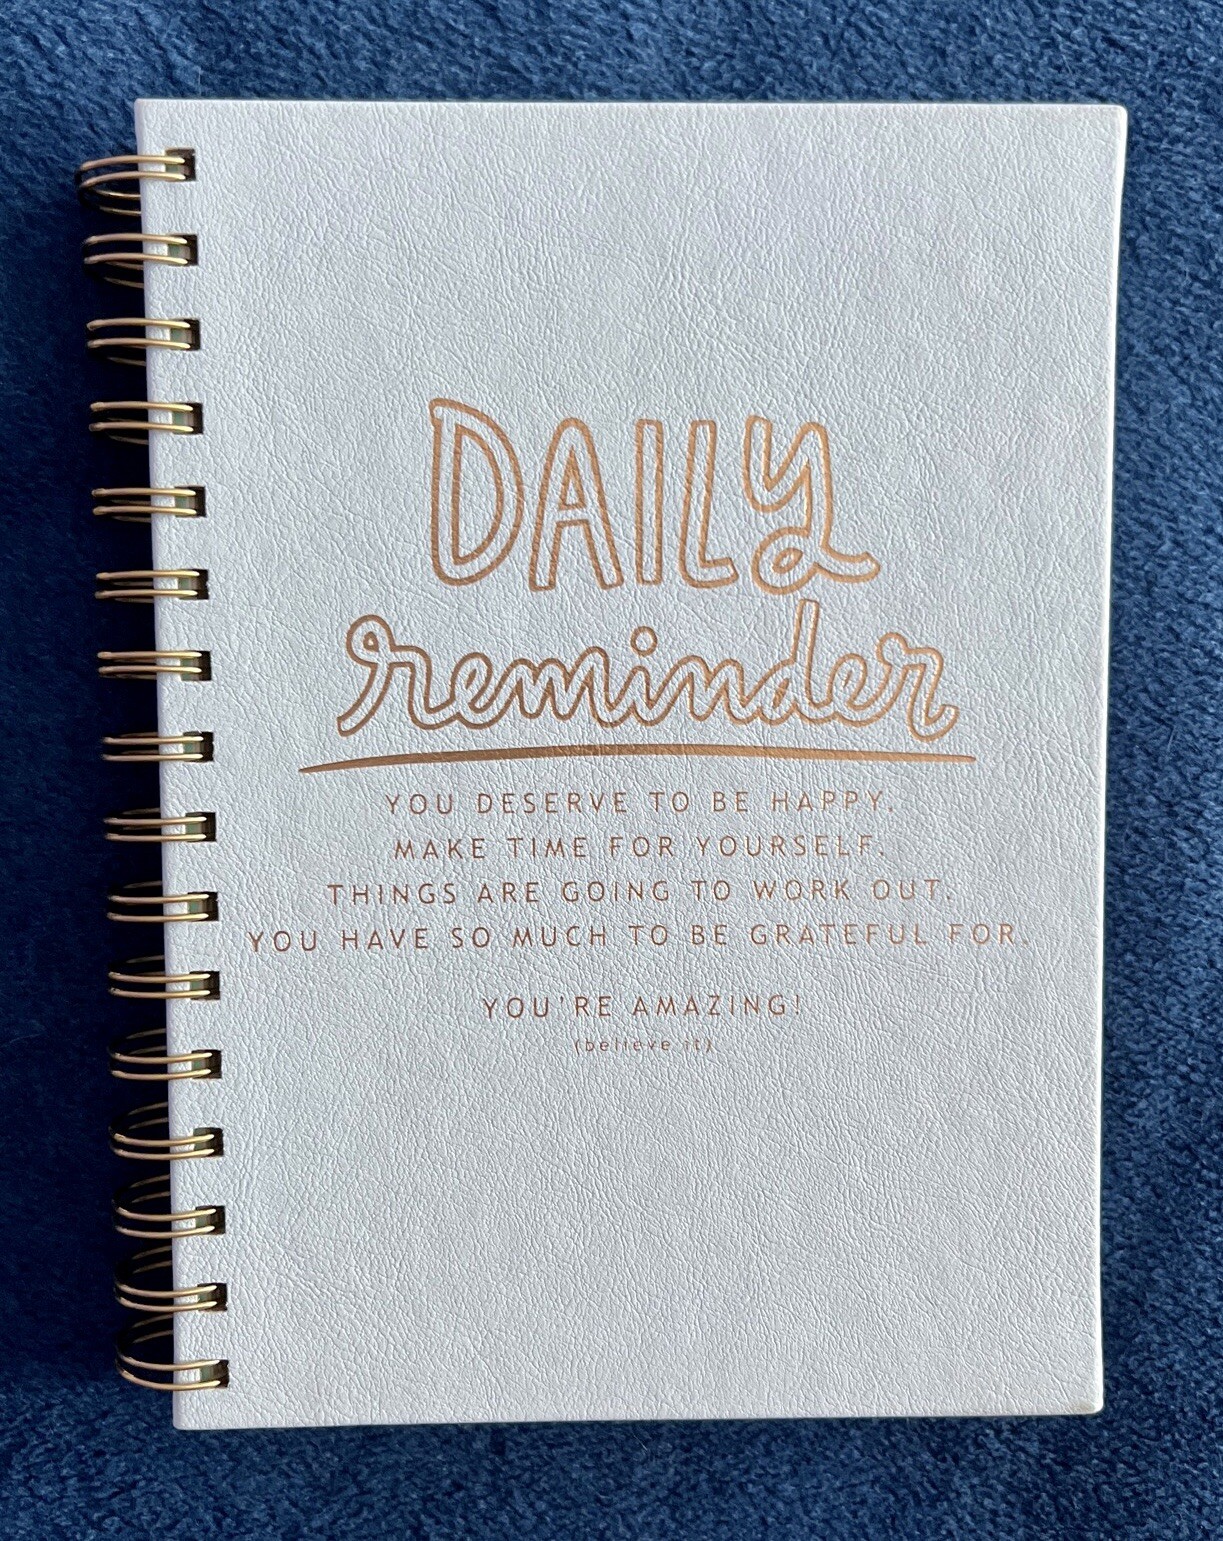 DAILy
reminder
YOU DESERVE TO BE HAPPY.
MAKE TIME FOR YOURSELF.
THINGS ARE GOING TO WORK OUT.
YOU HAVE SO MUCH TO BE GRATEFUL FOR.
YOU'RE AMAZING!
(believe it)